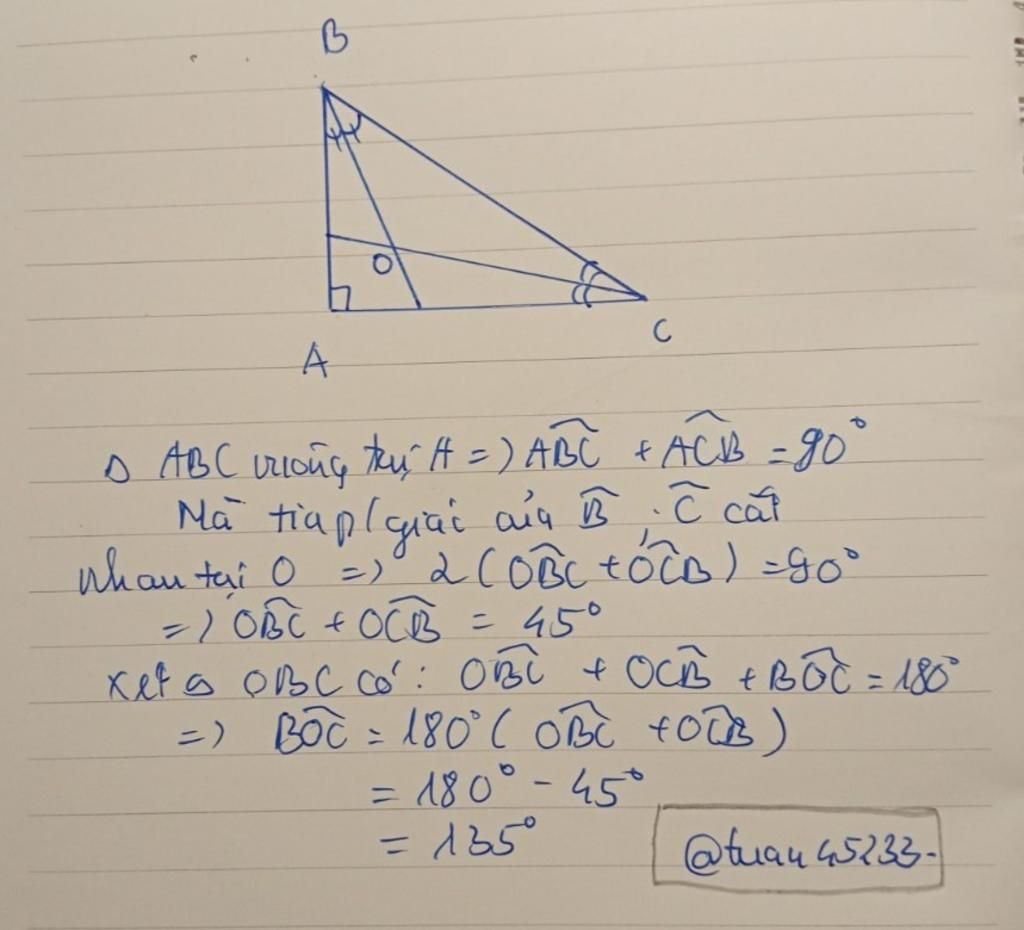 B
O
A
C
Δ ABC vuông tại A => ABC + ACB = 90°
Mà tia p/giác của B, C cắt
nhau tại O => 2(OBC + OCB) = 90°
=> OBC + OCB = 45°
Xét Δ OBC có: OBC + OCB + BOC = 180°
=> BOC = 180° ( OBC + OCB )
= 180° - 45°
= 135°
@tuan45233-